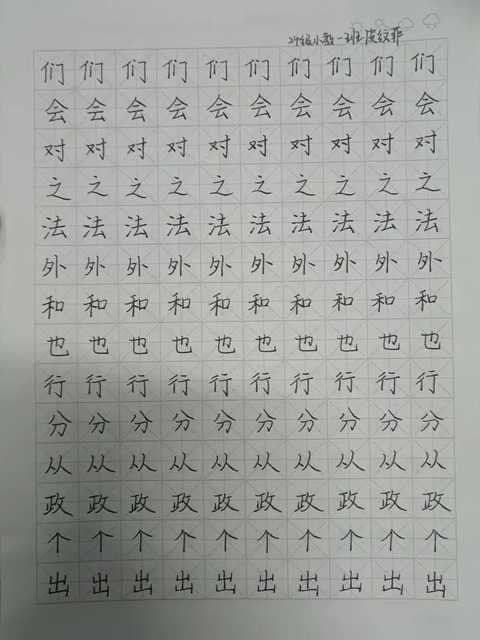 24级小教一班皮纹菲
们们们们们们们们们们
会会会会会会会会会会
对对对对对对对对对对
之之之之之之之之之之
法法法法法法法法法法
外外外外外外外外外外
和和和和和和和和和和
也也也也也也也也也也
行行行行行行行行行行
分分分分分分分分分分
从从从从从从从从从从
政政政政政政政政政政
个个个个个个个个个个
出出出出出出出出出出